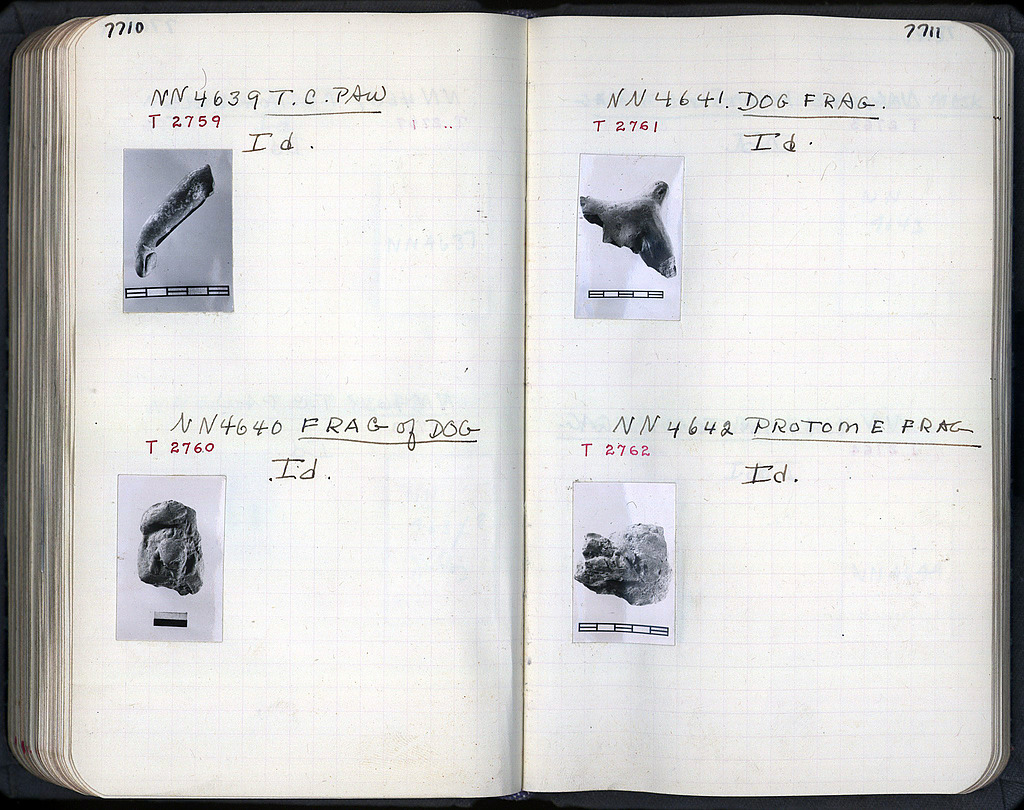 7710
NN 4639 T.C. PAW
T 2759
Id.
NN4640 FRAG of DOG
T 2760
Id.
7711
NN 4641. DOG FRAG.
T 2761
Id.
NN 4642 PROTOME FRAG
T 2762
Id.